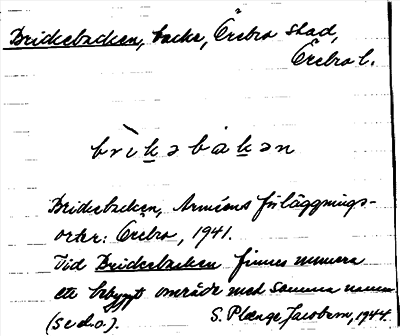 Brickebacken, backe, Örebro stad,
Örebro l.
brìkəbàkən
Brickebacken, Arméns förläggnings-
orter: Örebro, 1941.
Vid Brickebacken finnes numera
ett bebyggt område med samma namn
(se d.o.). S. Plænge Jacobson, 1944.